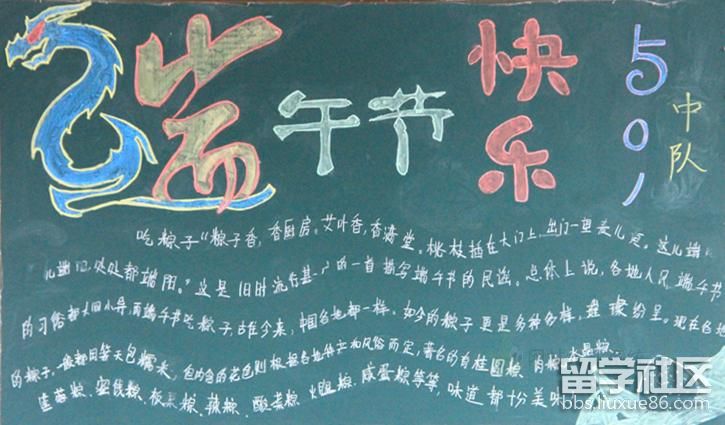 端午节快乐
501
中队
吃粽子“粽子香,香厨房。艾叶香,香满堂。桃枝插在大门上,出门一望麦儿黄。这儿端
儿端阳,处处都端阳。”这是旧时流行甚广的一首描写端午节的民谣。总体上说,各地人民端午节
的习俗都大同小异,而端午节吃粽子,古往今来,中国各地都一样。如今的粽子更是多种多样,璀璨纷呈。现在各地
的粽子,一般都用箬包糯米,但内含的花色则根据各地特产和风俗而定,著名的有桂圆粽、肉粽、水晶粽、
莲蓉粽、蜜饯粽、板栗粽、辣粽、酸菜粽、火腿粽、咸蛋粽等等,味道都十分美味
留学社区
bbs.liuxue86.com